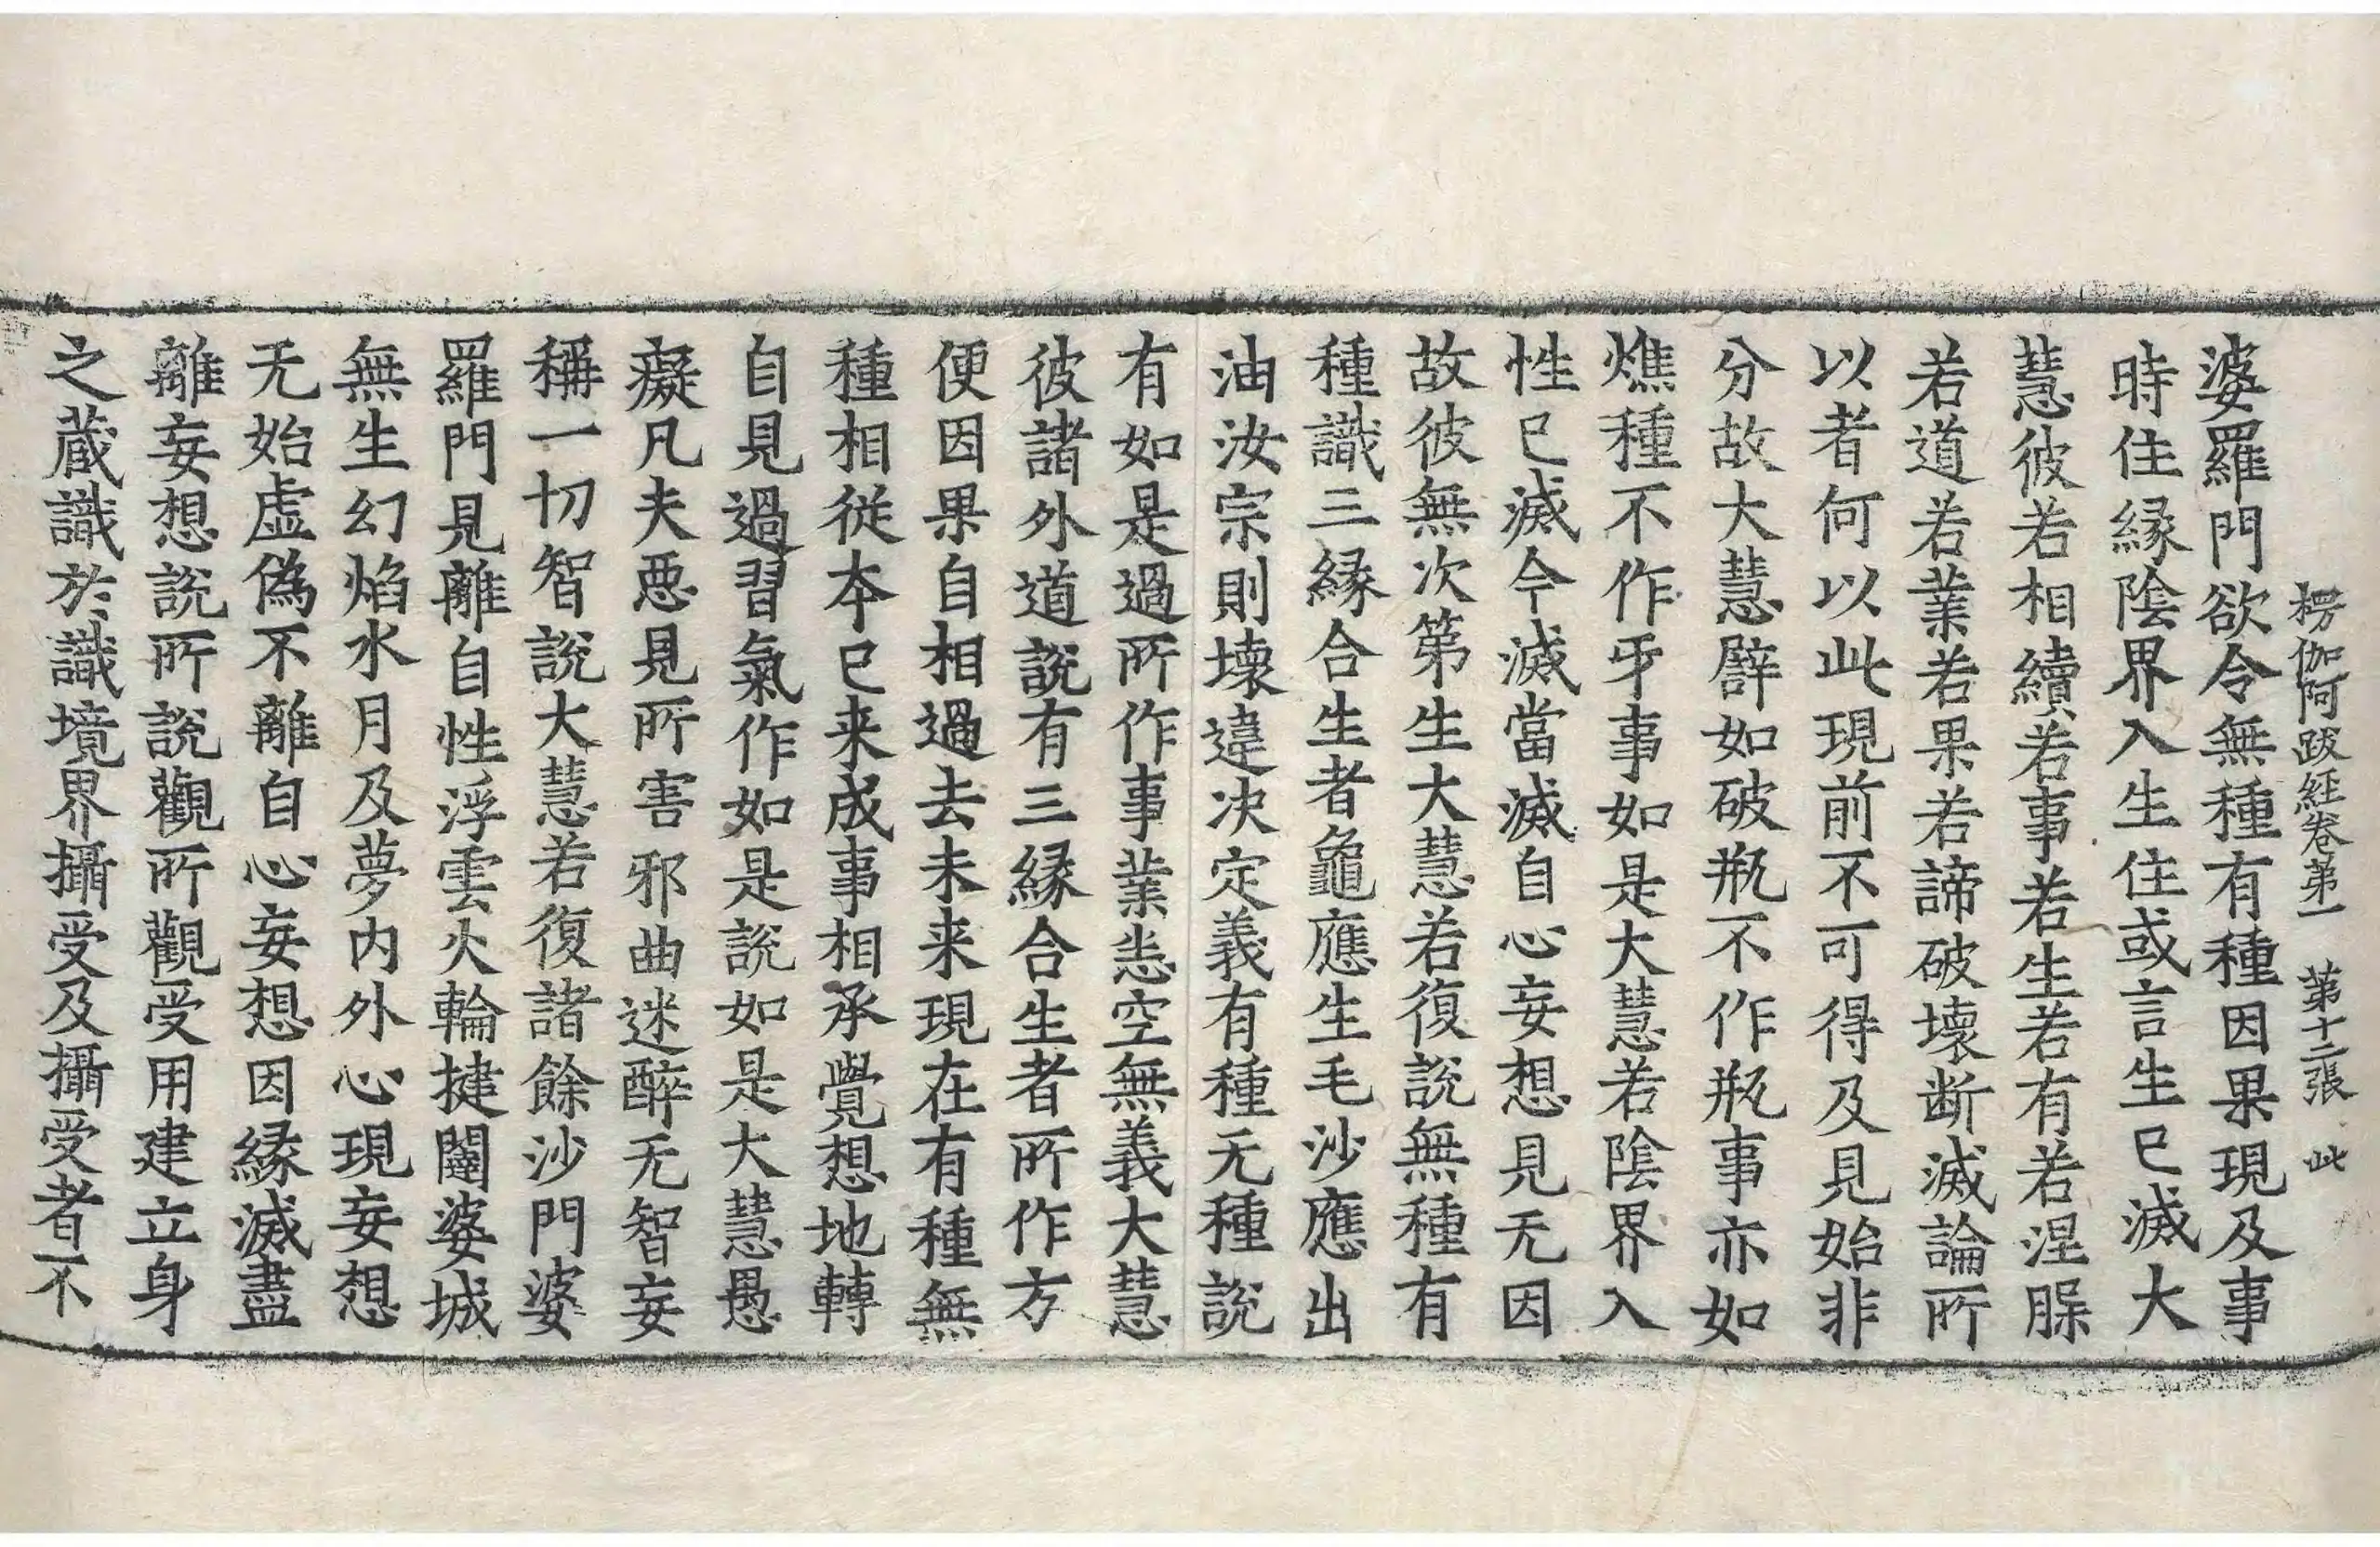 楞伽阿跋經卷第一　第十二張　此
婆羅門欲令無種有種因果現及事
時住縁陰界入生住或言生已滅大
慧彼若相續若事若生若有若涅脲
若道若業若果若諦破壞断滅論所
以者何以此現前不可得及見始非
分故大慧辟如破瓶不作瓶事亦如
燋種不作牙事如是大慧若陰界入
性已滅今滅當滅自心妄想見无因
故彼無次第生大慧若復説無種有
種識三縁合生者龜應生毛沙應出
油汝宗則壞違决定義有種无種說
有如是過所作事業悉空無義大慧
彼諸外道說有三縁合生者所作方
便因果自相過去未来現在有種無
種相從本已来成事相承覺想地轉
自見過習氣作如是說如是大慧愚
癡凡夫惡見所害邪曲迷醉无智妄
稱一切智說大慧若復諸餘沙門婆
羅門見離自性浮雲火輪揵闥婆城
無生幻焰水月及夢内外心現妄想
无始虚偽不離自心妄想因縁滅盡
離妄想說所說觀所觀受用建立身
之蔵識於識境界攝受及攝受者不